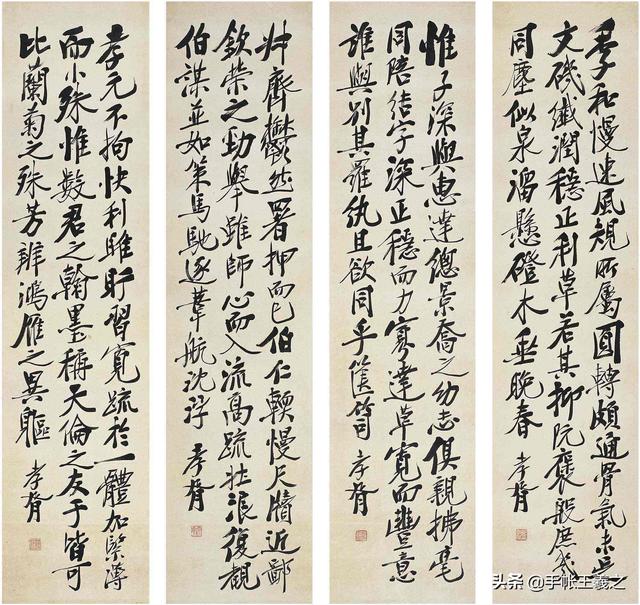 季和慢速風規所屬圓轉頗通骨氣未足
文磯纖潤穩正利草若其抑阮褒殷庶幾
同塵似泉溜懸磴木垂晚春 孝胥
惟子深與惠達總景喬之幼志俱親拂毫
同陪結字深正穩而力寡達草寬而豐意
誰與別其羅紈且欲同乎篋笥 孝胥
叔齊鬱然署押而已伯仁輭慢尺牘近鄙
欽榮之勁舉雖師心而入流高疏壯浪復觀
伯謀並如策馬馳逐葦航沈浮 孝胥
孝元不拘快利睢盱習寬疏於一體加緊薄
而小殊惟數君之翰墨稱天倫之友于皆可
比蘭菊之殊芳辨鴻雁之異軀 孝胥
头条 @手帐王羲之